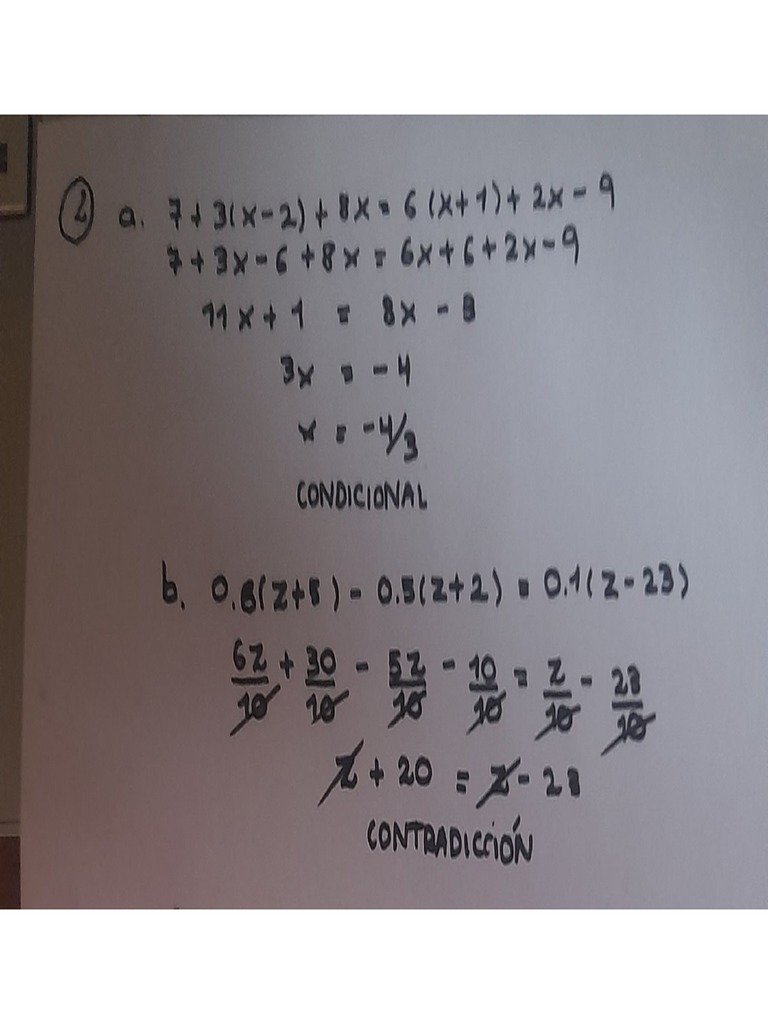 2 a. 7+3(x-2)+8x=6(x+1)+2x-9
7+3x-6+8x=6x+6+2x-9
11x+1 = 8x-3
3x = -4
x = -4/3
CONDICIONAL
b. 0.6(z+5)-0.5(z+2)=0.1(z-23)
6z/10 + 30/10 - 5z/10 - 10/10 = z/10 - 23/10
z+20 = z-23
CONTRADICCIÓN